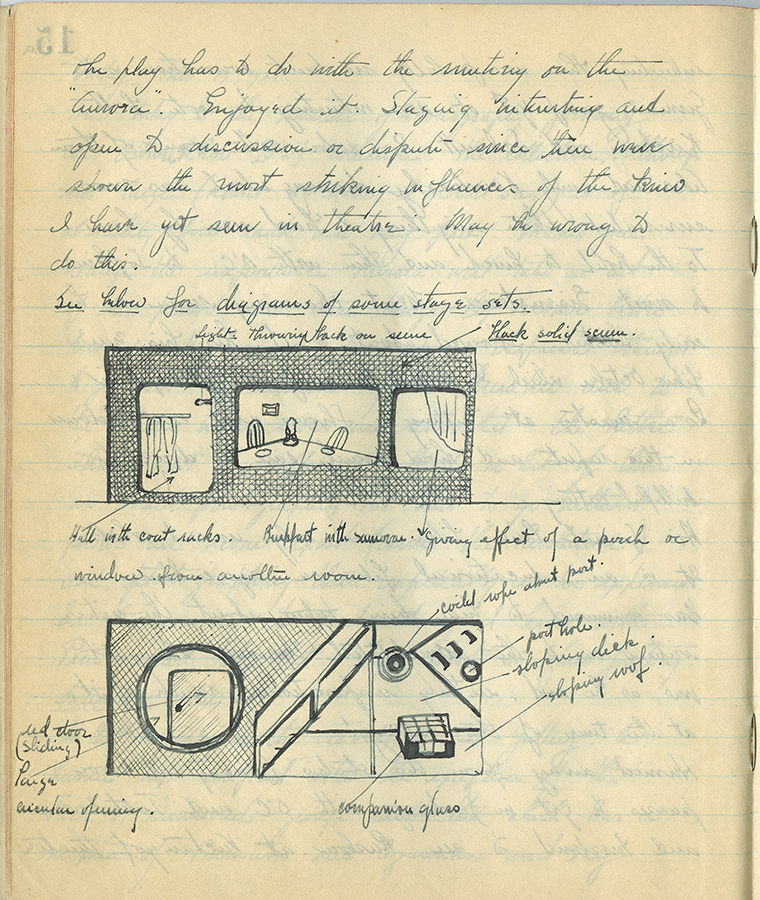 The play has to do with the mutiny on the
"Aurora". Enjoyed it. Staging interesting and
open to discussion or dispute since there were
shown the most striking influences of the kino
I have yet seen in theatre. May be wrong to
do this.
See below for diagrams of some stage sets.
Light throwing back on scene
Black solid screen.
Hall with coat racks. Buffet with samovar. Giving effect of a porch or
window from another room.
coiled rope about port.
port hole.
sloping deck.
sloping roof.
red door
(sliding)
Large
circular opening.
companion glass